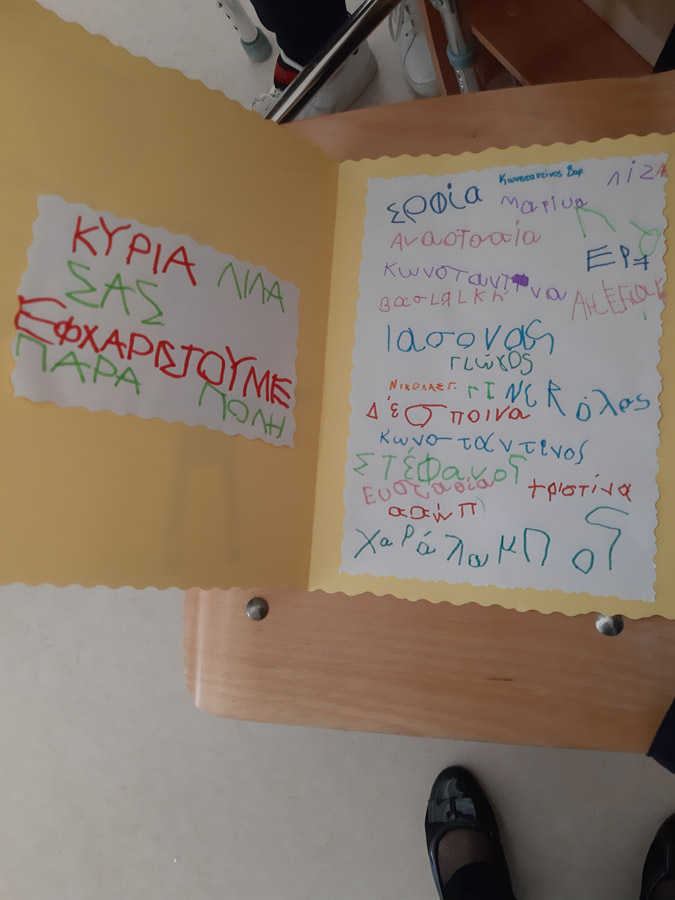 ΚΥΡΙΑ ΛΙΛΑ
ΣΑΣ
ΕΦΧΑΡΙΣΤΟΥΜΕ
ΠΑΡΑ ΠΟΛΗ
Κωνσταντίνος Βαρ
λίζα
Μαρίνα
Αναστασία
ΕΡΛ
Κωνσταντίνα
Βασιλική
Ιασονας
Γιώχος
ΝΙΚΟΛΑΣ Γ.
Δέσποινα
Κωνσταντίνος
Στέφανος
Ευστασία
Χριστίνα
Χαράλαμπος